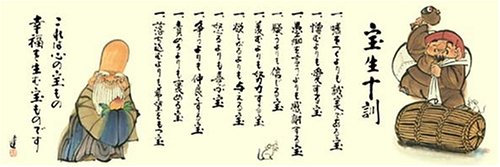 宝生十訓
一、嘘をつくよりも誠実である宝
一、憎むよりも愛する宝
一、愚痴を言うよりも感謝する宝
一、疑うより信じる宝
一、羨むよりも努力する宝
一、欲しがるよりも与える宝
一、怒るよりも喜ぶ宝
一、争うよりも仲良しする宝
一、責めるよりも褒める宝
一、落ち込むよりも希望をもつ宝
これは心の宝もの
幸福を生む宝ものです